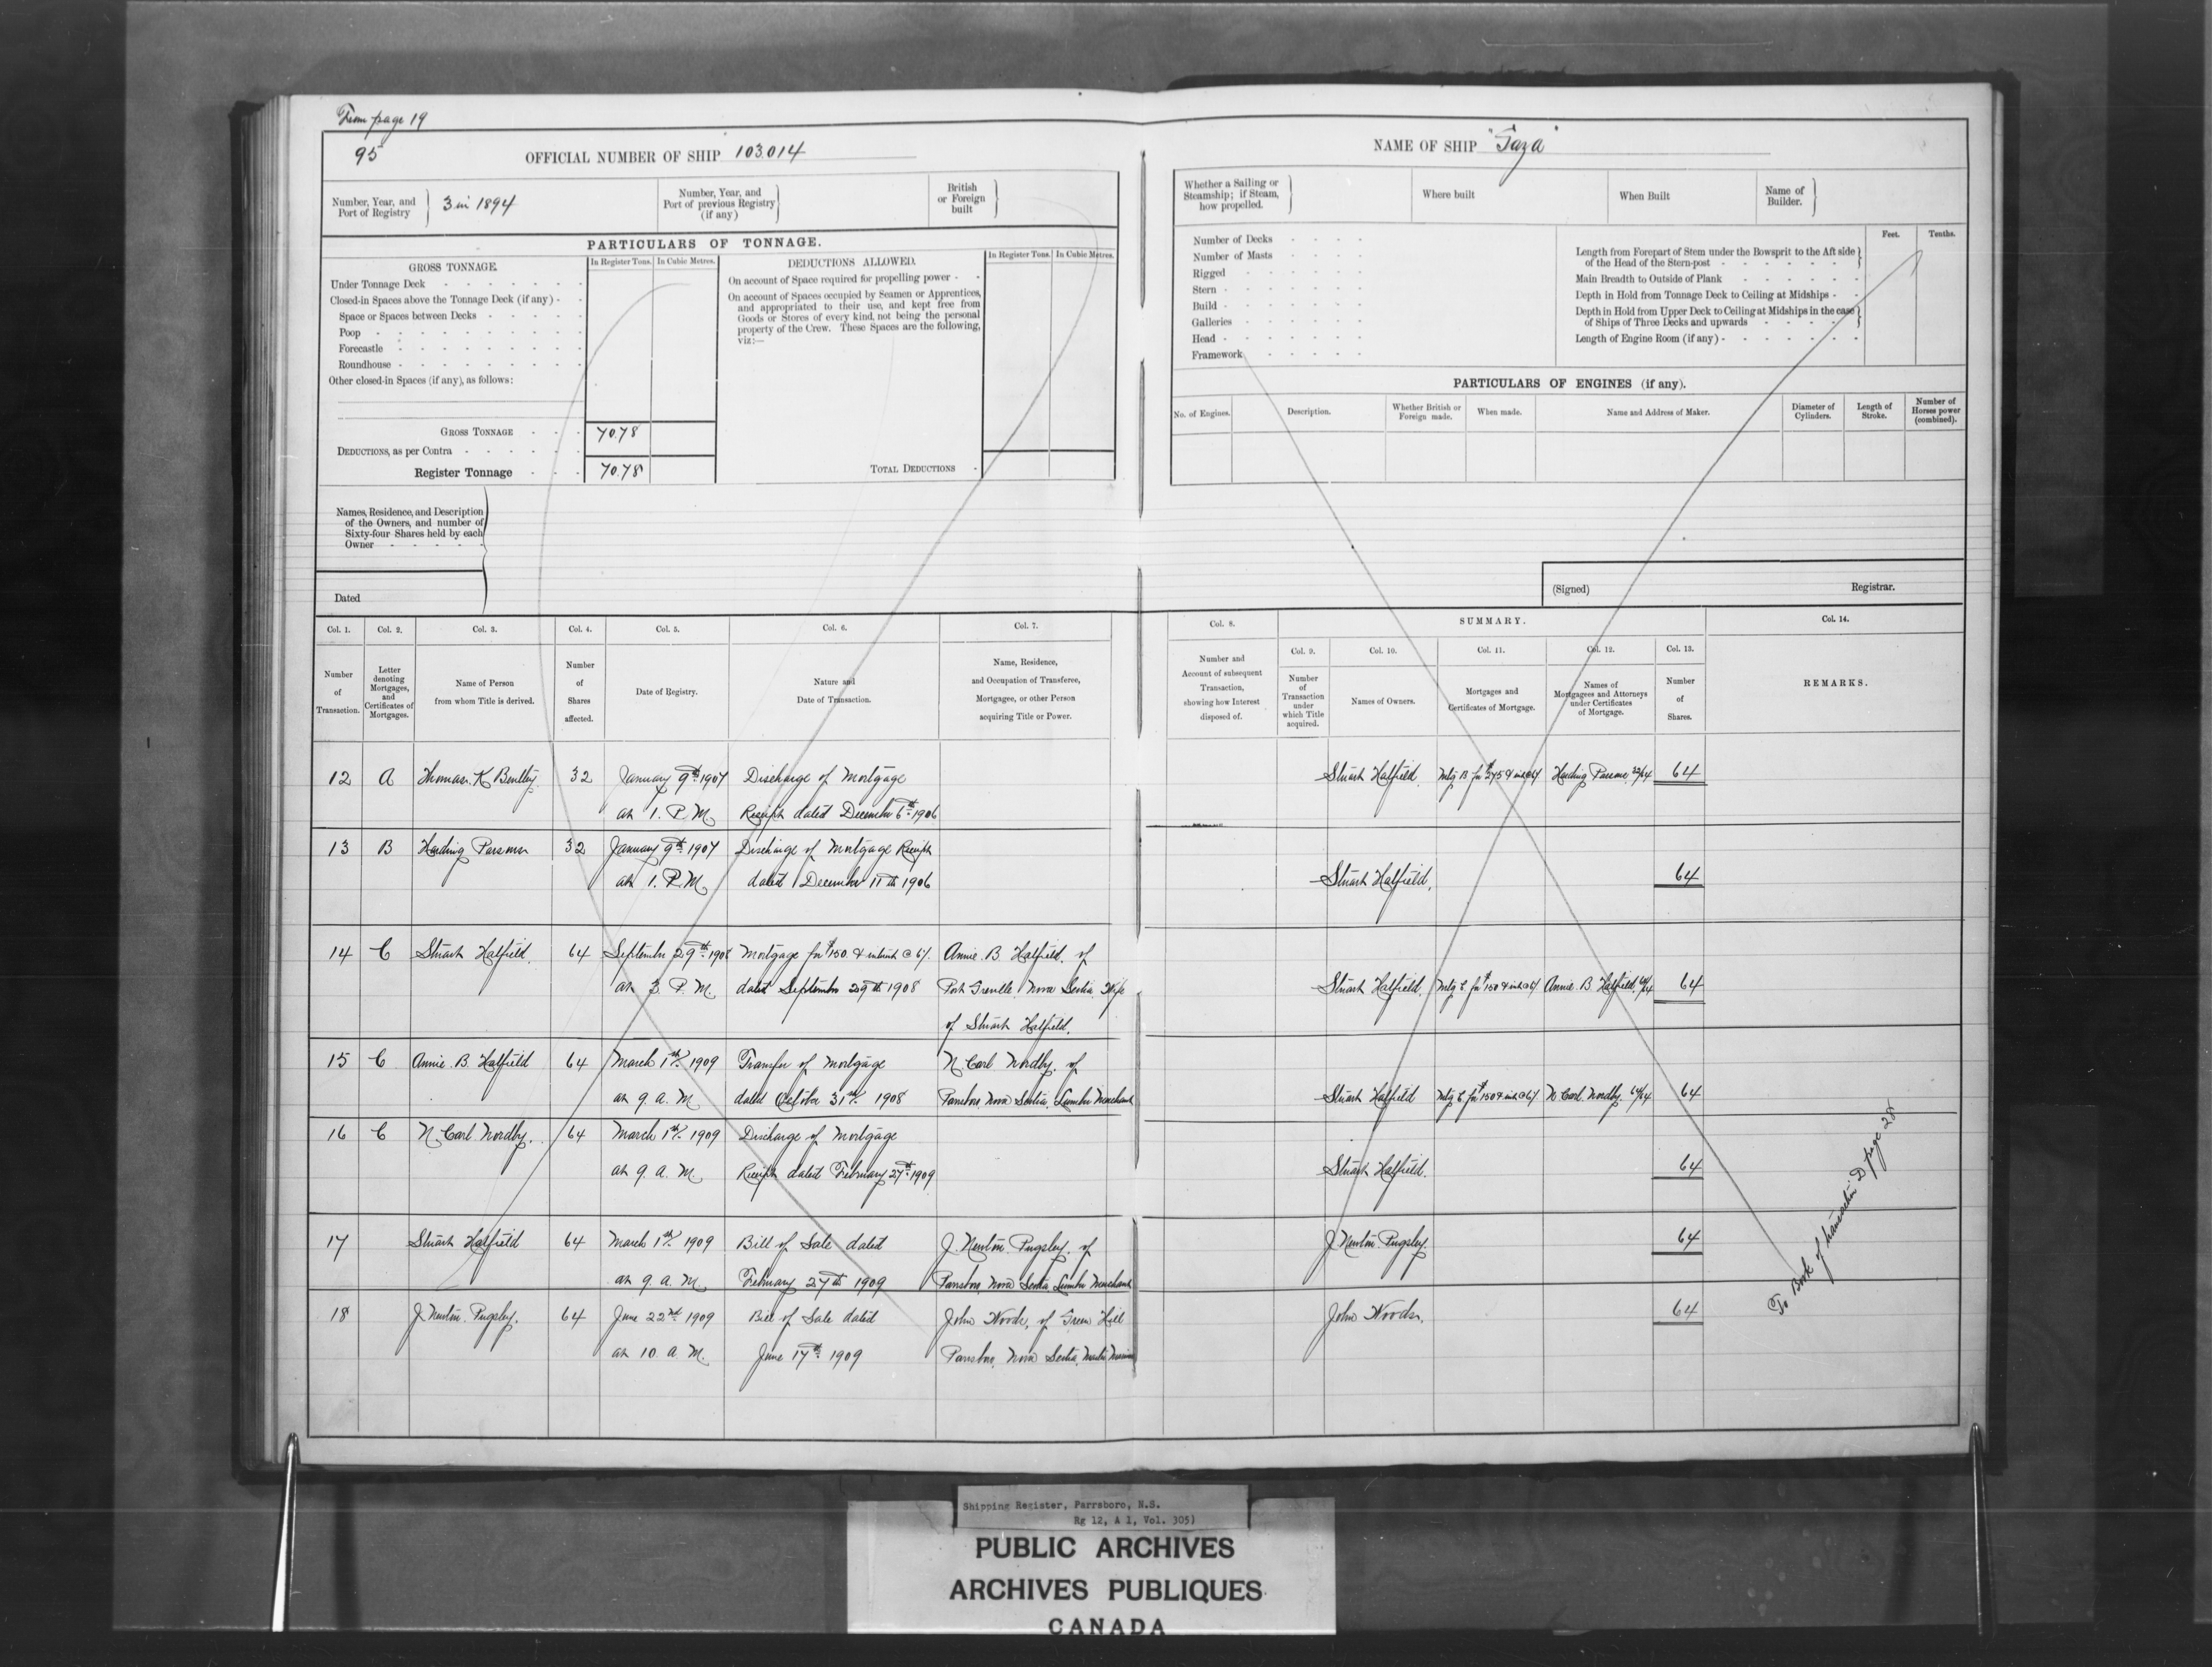 From page 19
95
OFFICIAL NUMBER OF SHIP 103.014
Number, Year, and Port of Registry
3 in 1894
Number, Year, and Port of previous Registry (if any)
British or Foreign built
PARTICULARS OF TONNAGE.
GROSS TONNAGE.
In Register Tons. In Cubic Metres.
DEDUCTIONS ALLOWED.
In Register Tons. In Cubic Metres.
Under Tonnage Deck
Closed-in Spaces above the Tonnage Deck (if any)
Space or Spaces between Decks
Poop
Forecastle
Roundhouse
Other closed-in Spaces (if any), as follows:
On account of Space required for propelling power
On account of Spaces occupied by Seamen or Apprentices,
and appropriated to their use, and kept free from
Goods or Stores of every kind, not being the personal
property of the Crew. These Spaces are the following,
viz:—
GROSS TONNAGE 70.78
DEDUCTIONS, as per Contra
Register Tonnage 70.78
TOTAL DEDUCTIONS
Names, Residence, and Description
of the Owners, and number of
Sixty-four Shares held by each
Owner
Dated
NAME OF SHIP "Gaza"
Whether a Sailing or Steamship; if Steam, how propelled.
Where built
When Built
Name of Builder.
Number of Decks
Number of Masts
Rigged
Stern
Build
Galleries
Head
Framework
Feet. Tenths.
Length from Forepart of Stem under the Bowsprit to the Aft side
of the Head of the Stern-post
Main Breadth to Outside of Plank
Depth in Hold from Tonnage Deck to Ceiling at Midships
Depth in Hold from Upper Deck to Ceiling at Midships in the case
of Ships of Three Decks and upwards
Length of Engine Room (if any)
PARTICULARS OF ENGINES (if any).
No. of Engines.
Description.
Whether British or Foreign made.
When made.
Name and Address of Maker.
Diameter of Cylinders.
Length of Stroke.
Number of Horses power (combined).
(Signed)
Registrar.
Col. 1. Col. 2. Col. 3. Col. 4. Col. 5. Col. 6. Col. 7.
Number of Transaction.
Letter denoting Mortgages, and Certificates of Mortgages.
Name of Person from whom Title is derived.
Number of Shares affected.
Date of Registry.
Nature and Date of Transaction.
Name, Residence, and Occupation of Transferee, Mortgagee, or other Person acquiring Title or Power.
Col. 8.
Number and Account of subsequent Transaction, showing how Interest disposed of.
SUMMARY.
Col. 9. Col. 10. Col. 11. Col. 12. Col. 13.
Number of Transaction under which Title acquired.
Names of Owners.
Mortgages and Certificates of Mortgage.
Names of Mortgagees and Attorneys under Certificates of Mortgage.
Number of Shares.
Col. 14.
REMARKS.
12 A Thomas K Bentley 32 January 9th 1907 Discharge of Mortgage
at 1. P.M. Receipt dated December 6th 1906
Stuart Hatfield. Mtg B for Harding Parsons 32/64 64
13 B Harding Parsons 32 January 9th 1907 Discharge of Mortgage Receipt
at 1. P.M. dated December 11th 1906
Stuart Hatfield. 64
14 C Stuart Hatfield. 64 September 29th 1908 Mortgage for $150. & interest @ 6%. Annie. B. Hatfield. of
at 3. P.M. dated September 29th 1908 Port Greville. Nova Scotia Wife
of Stuart Hatfield.
Stuart Hatfield. Mtg C for $150 & int @ 6% Annie. B Hatfield. 64/64 64
15 C Annie. B. Hatfield 64 March 1st. 1909 Transfer of Mortgage N. Carl Nordby. of
at 9. a. M. dated October 31st. 1908 Parrsboro, Nova Scotia. Lumber Merchant
Stuart Hatfield Mtg C for $150 & int @ 6% N Carl. Nordby. 64/64 64
16 C N. Carl Nordby. 64 March 1st. 1909 Discharge of Mortgage
at 9. a. M. Receipt dated February 27th 1909
Stuart Hatfield. 64
17 Stuart Hatfield 64 March 1st. 1909 Bill of Sale dated J. Newton. Pugsley. of
at 9. a. M. February 27th 1909 Parrsboro, Nova Scotia Lumber Merchant
J Newton. Pugsley. 64
18 J Newton. Pugsley. 64 June 22nd 1909 Bill of Sale dated John Woods, of Green Hill
at 10 a. M. June 17th 1909 Parrsboro, Nova Scotia, Master Mariner
John Woods. 64
To Book of transaction D page 28
Shipping Register, Parrsboro, N.S.
Rg 12, A 1, Vol. 305)
PUBLIC ARCHIVES
ARCHIVES PUBLIQUES
CANADA